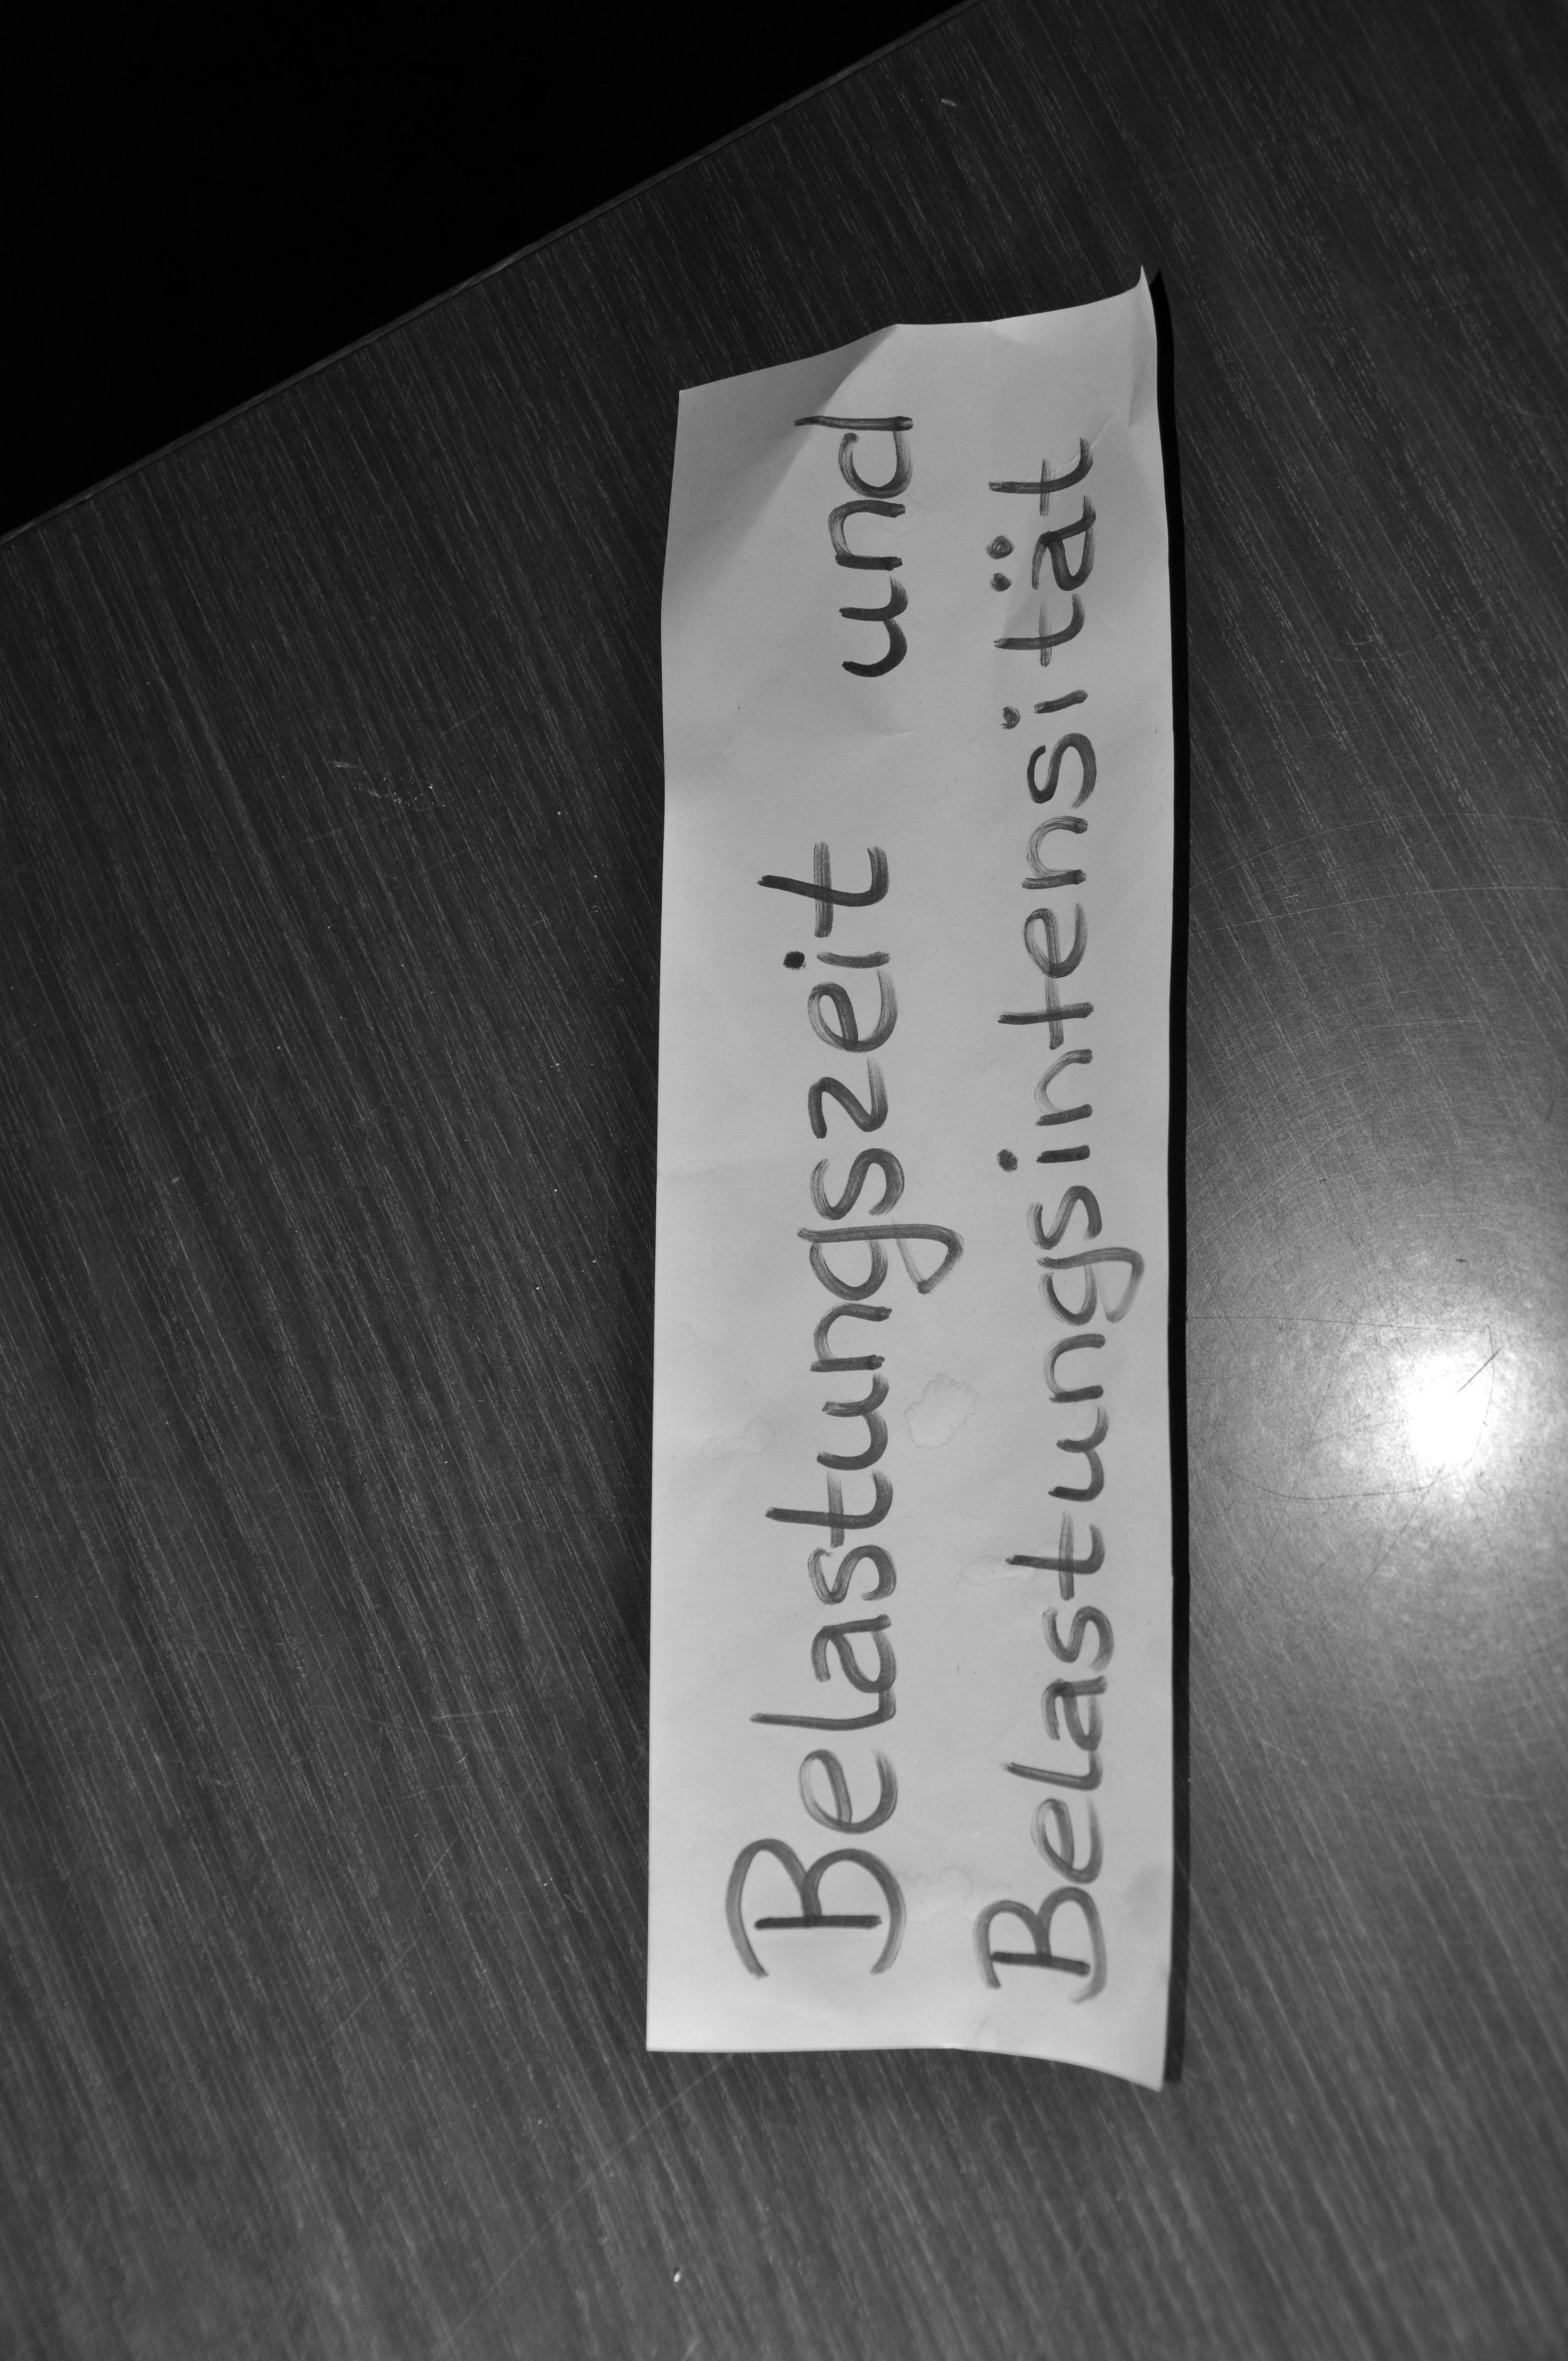 Belastungszeit und
Belastungsintensität